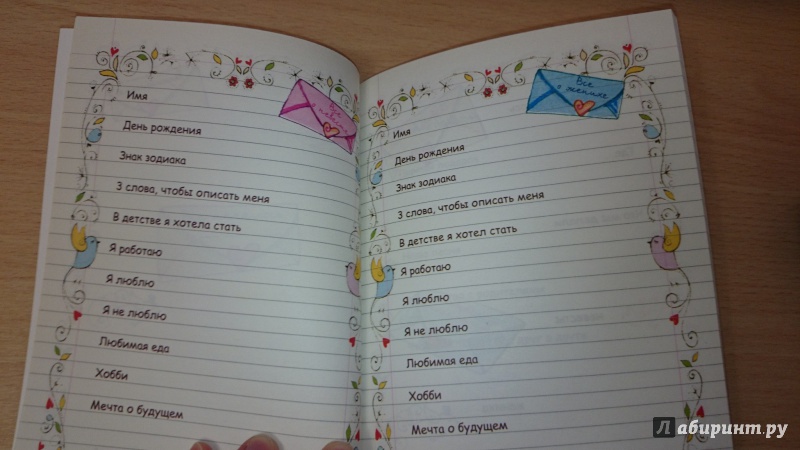 Все
о невесте
Имя
День рождения
Знак зодиака
3 слова, чтобы описать меня
В детстве я хотела стать
Я работаю
Я люблю
Я не люблю
Любимая еда
Хобби
Мечта о будущем
Все
о женихе
Имя
День рождения
Знак зодиака
3 слова, чтобы описать меня
В детстве я хотел стать
Я работаю
Я люблю
Я не люблю
Любимая еда
Хобби
Мечта о будущем
Лабиринт.ру